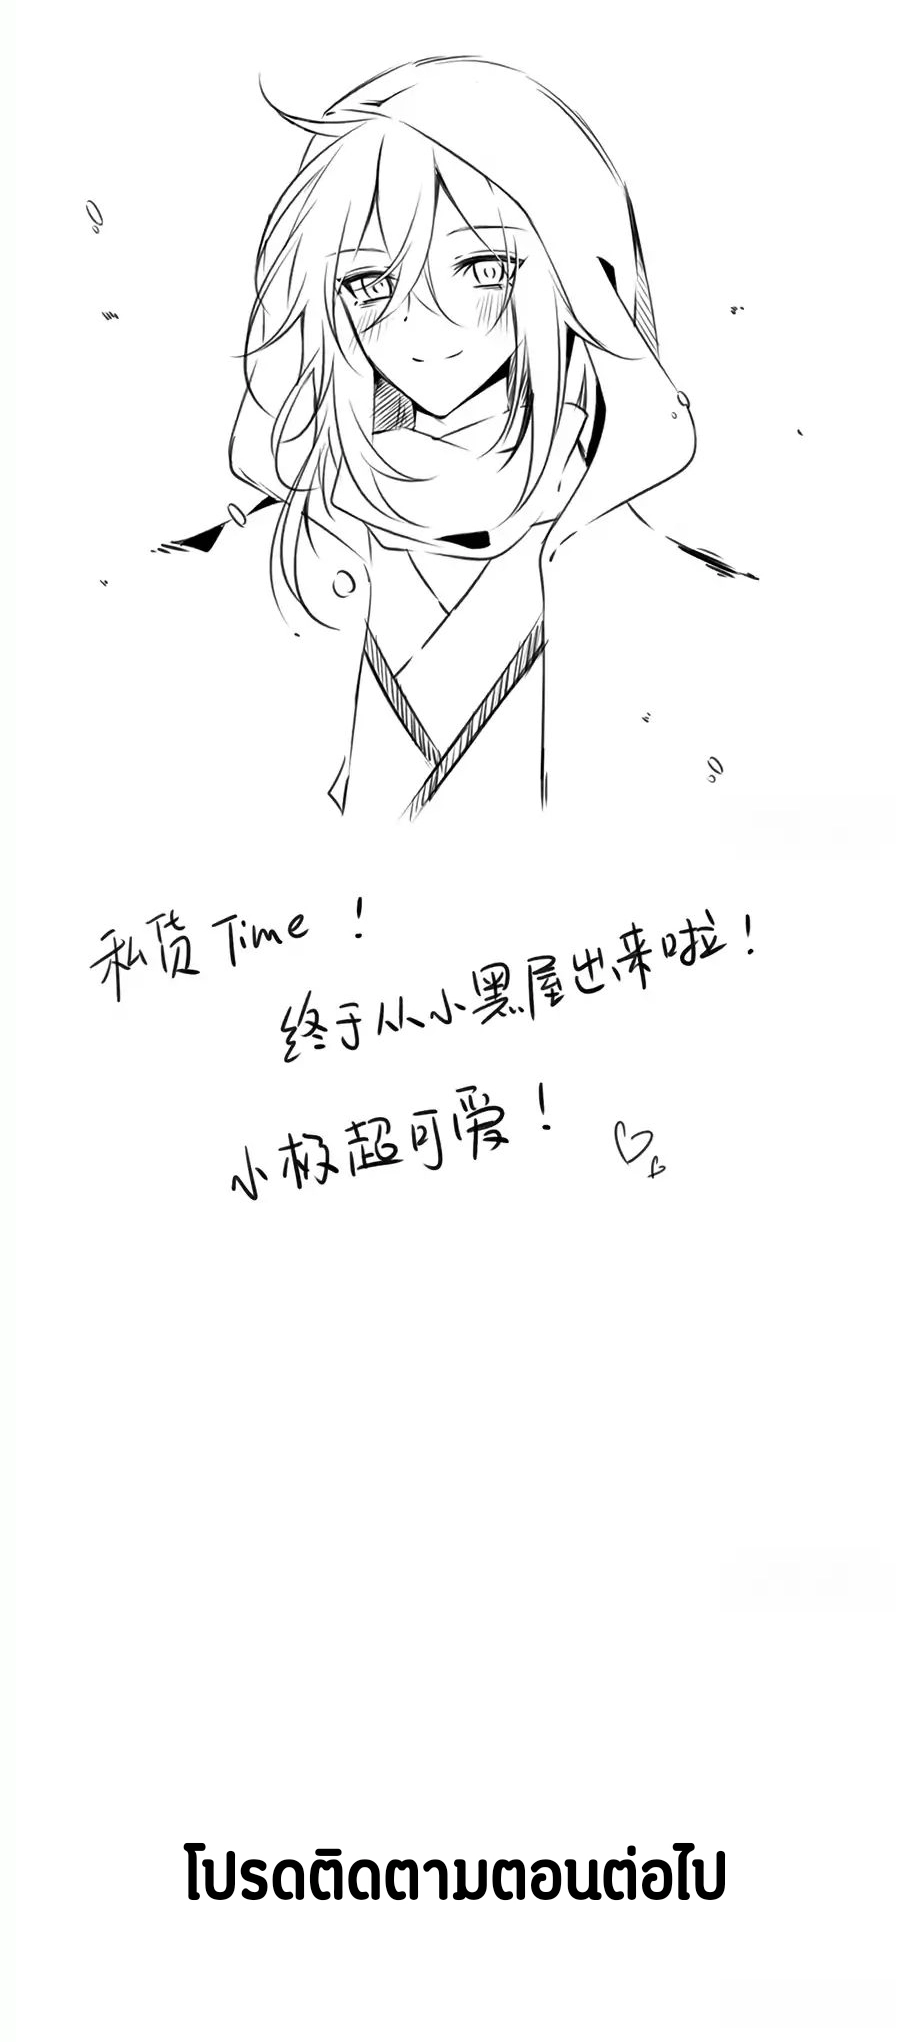 私货Time！
终于从小黑屋出来啦！
小极超可爱！
โปรดติดตามตอนต่อไป